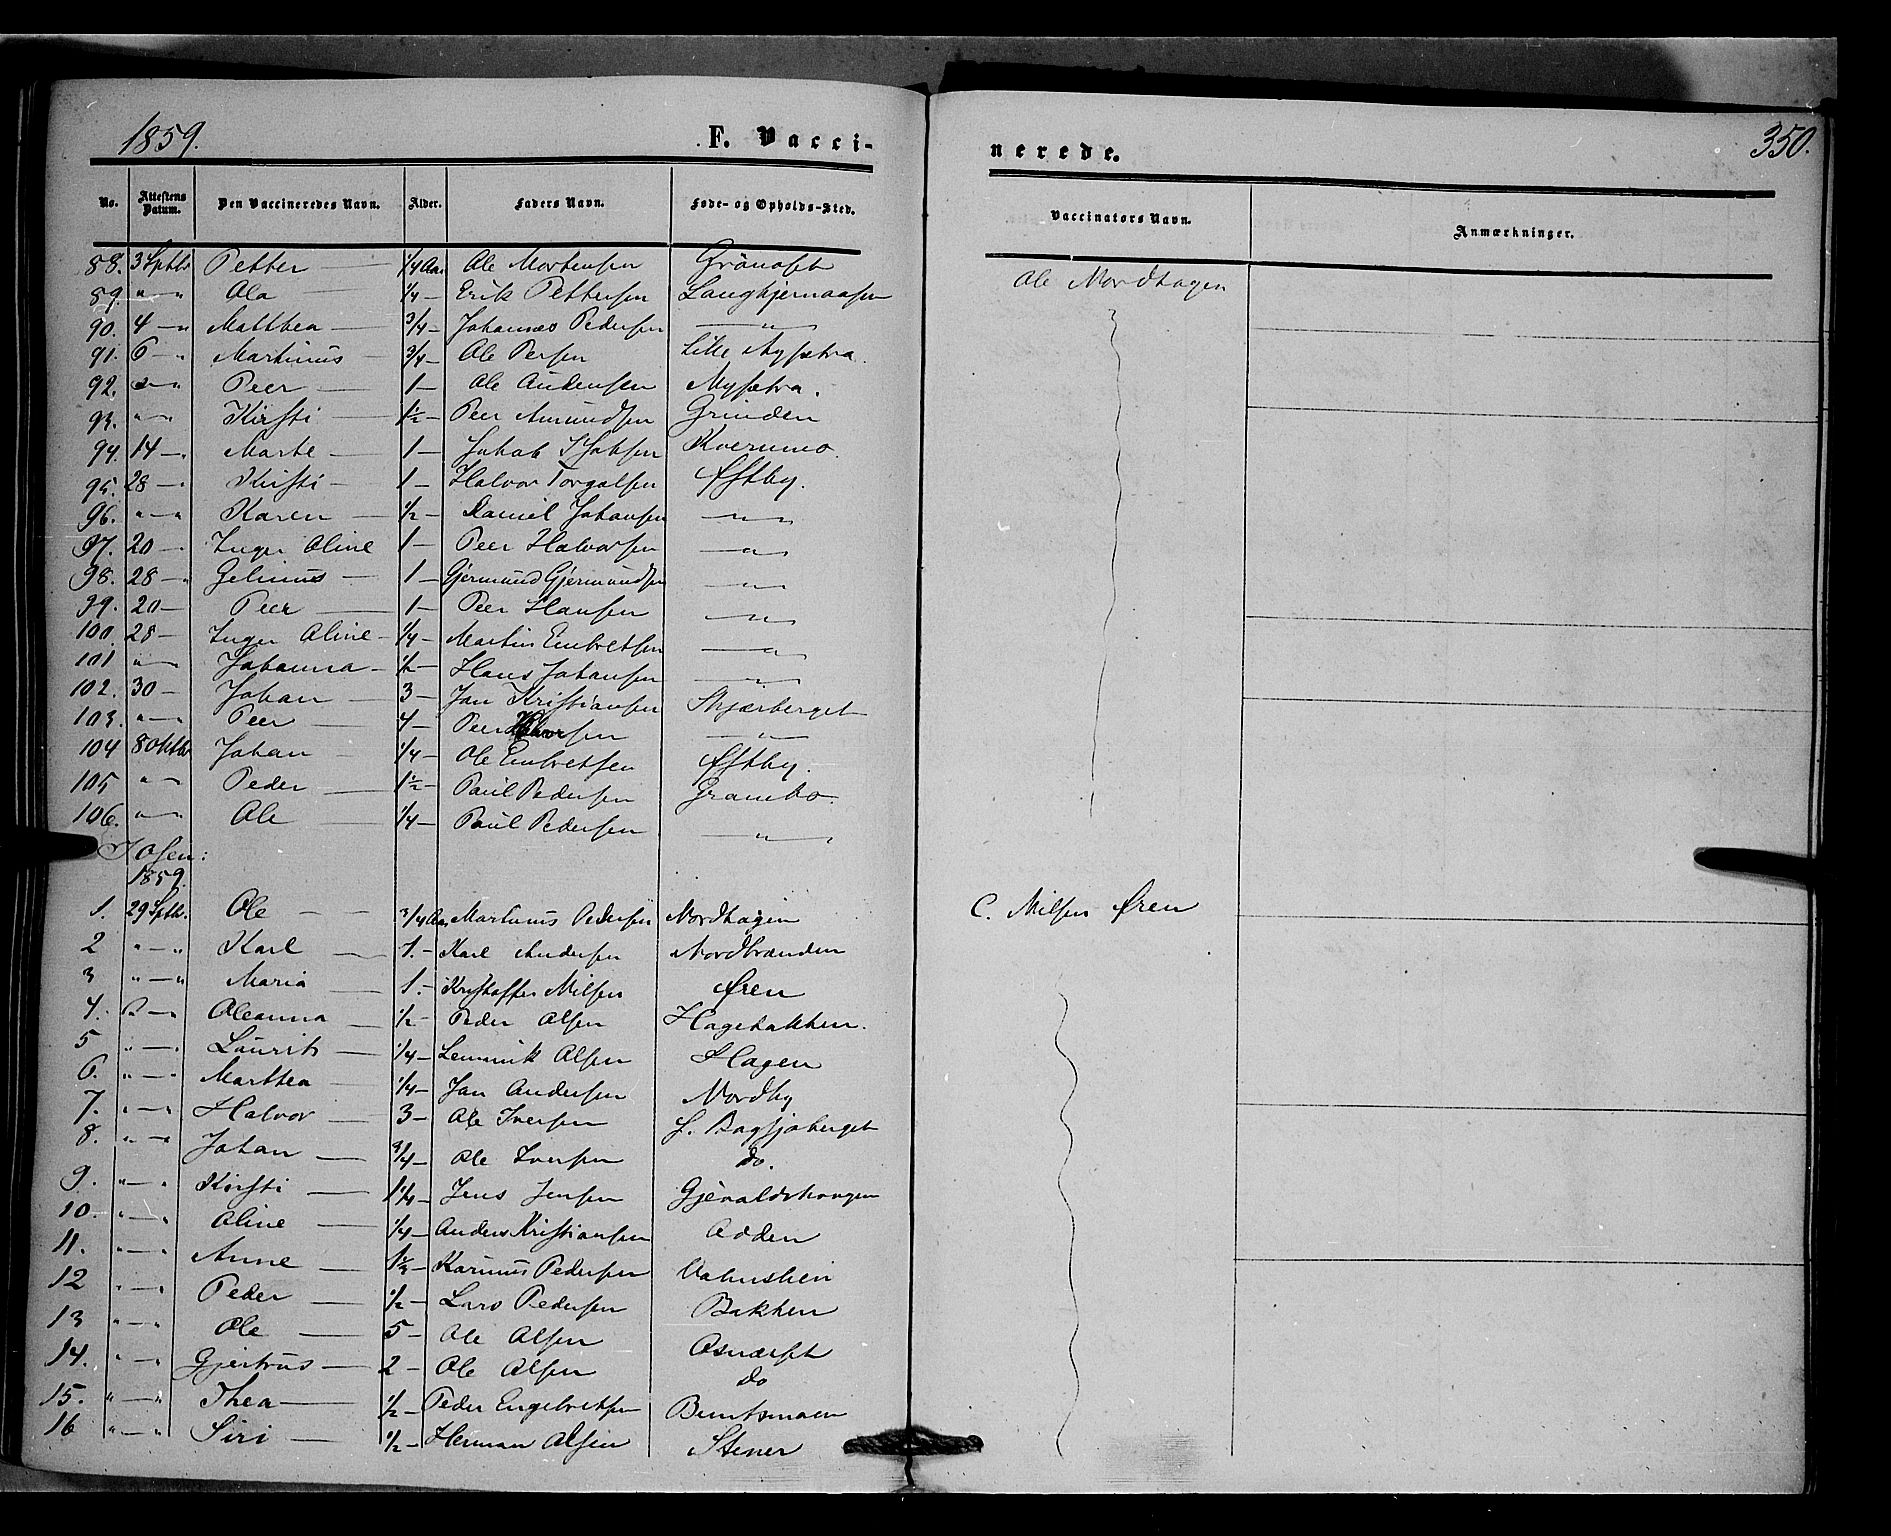 1859. F. Vacci- nerede. 350.
No. Attestens Datum. Den Vaccineredes Navn. Alder. Faders Navn. Føde- og Opholds-Sted. Vaccinatørs Navn. Anmærkninger.
88. 3 Septbr Petter — 1/4 Aar Ole Mortensen Grönoset Ole Nordhagen
89. " " Ola 1/4 — Erik Pettersen Langkjernaasen
90. 4 — " Matthea — 3/4 — Johannes Pedersen — " —
91. 6 — " Martinus — 3/4 — Ole Persen Lille Nysetra.
92. " Peer — 1 — Ole Andersen Nysetra.
93. " — " Kirsti — 1 1/2 — Peer Amundsen Grinden
94. 14 — " Marte — 1 — Jakob Kverumo
95. 28 — " Kirsti — 1 — Halvor Torgalsen Østby.
96. " — " Karen — 1/2 — Daniel Johansen — " —
97. 20 — Inger Oline 1 — Peer Halvorsen — " —
98. 28 — " Gelinus — 1 — Gjermund Gjermundsen — " —
99. 20 — Peer — 1 — Peer Hansen — " —
100. 28 — Inger Oline — 1/4 — Martin Embretsen — " —
101 " — " Johanna — 1/2 — Hans Johansen — " —
102. 30 — Johan — 3 — Jan Kristiansen Skjærberget
103. " — " Peer — 4 — Peer Halvorsen — " —
104 8 Oktbr Johan — 1/4 — Ole Embretsen Østby.
105 " — " Peder — 1 1/2 — Paul Pedersen Grambo.
106. " — " Ole — 1/4 — Paul Pedersen — " —
I Osen:
1859.
1. 29 Sptb. Ole — — 3/4 Aar Martinus Pedersen Nordhagen C. Nilsen Øren
2 " — " Karl — 1. — Karl Andersen Nordbranden
3 " — " Maria — 1. — Kristoffer Nilsen Øren
4. " — " Oleanna — 1/2 — Peder Olsen Hagebakken.
5 " — " Laurits — 1/4 — Lemmik Olsen Hagen
6. " — " Marthea — 1/4 — Jan Andersen Nordby
7. " — " Halvor — 3 — Ole Iversen S. Bagsjøberget
8. " — " Johan — 3/4 — Ole Iversen do.
9. " — " Kirsti — 1 1/4 — Jens Jensen Gjevaldshaugen
10. " — " Oline — 1/4 — Anders Kristiansen Odden
11. " — " Anne — 1 1/2 — Karinus Pedersen Valmstein
12 " — " Peder — 1/2 — Lars Pedersen Bakken
13 " — " Ole — 5 — Ole Olsen Osneset
14. " — " Gjertrus — 2 — Ole Olsen do
15. " — " Thea — 1/2 — Peder Engebretsen Beritsmoen
16 " — " Siri — 1/2 — Herman Olsen Stener